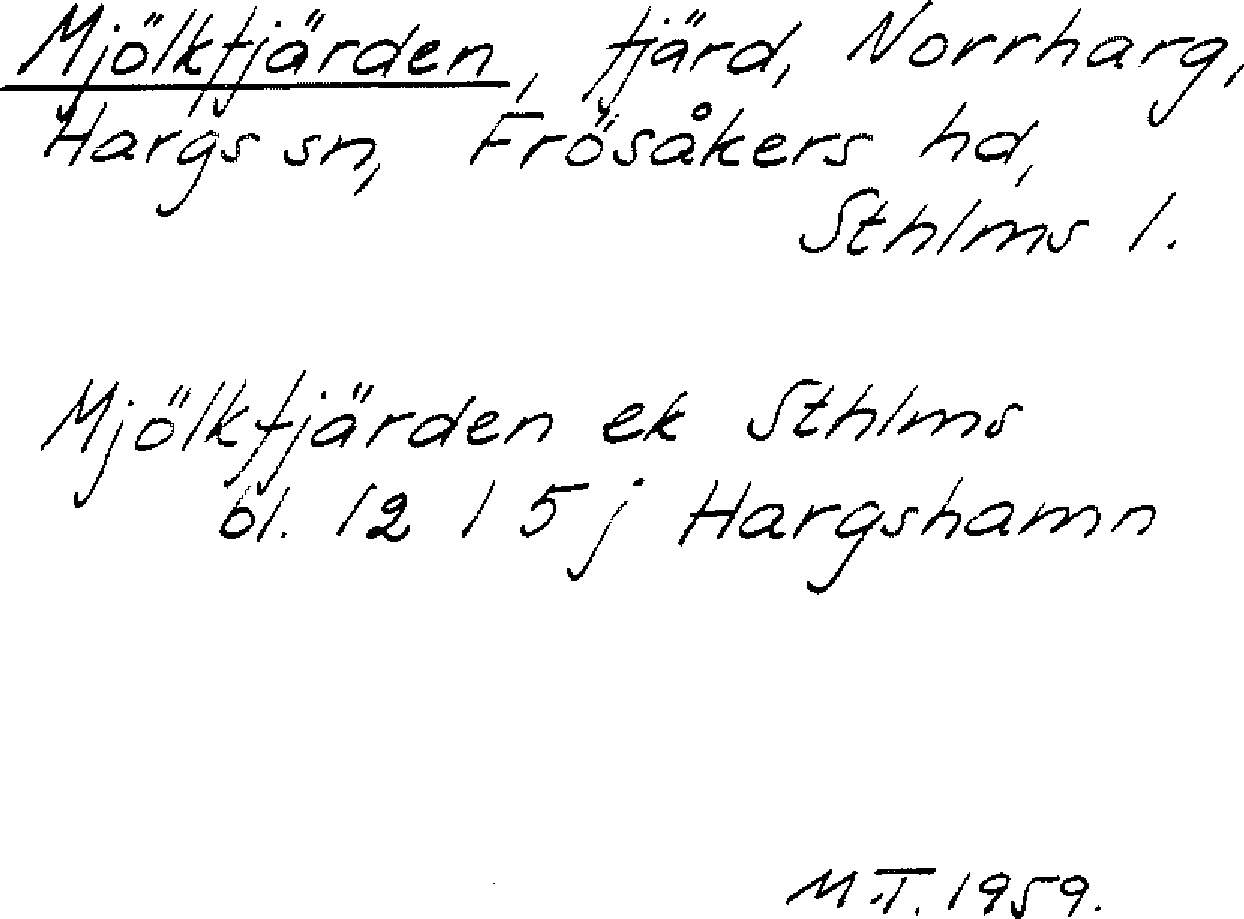 Mjölkfjärden, fjärd, Norrharg,
Hargs sn, Frösåkers hd,
Sthlms l.
Mjölkfjärden ek Sthlms
bl. 12 I 5 j Hargshamn
M.T. 1959.